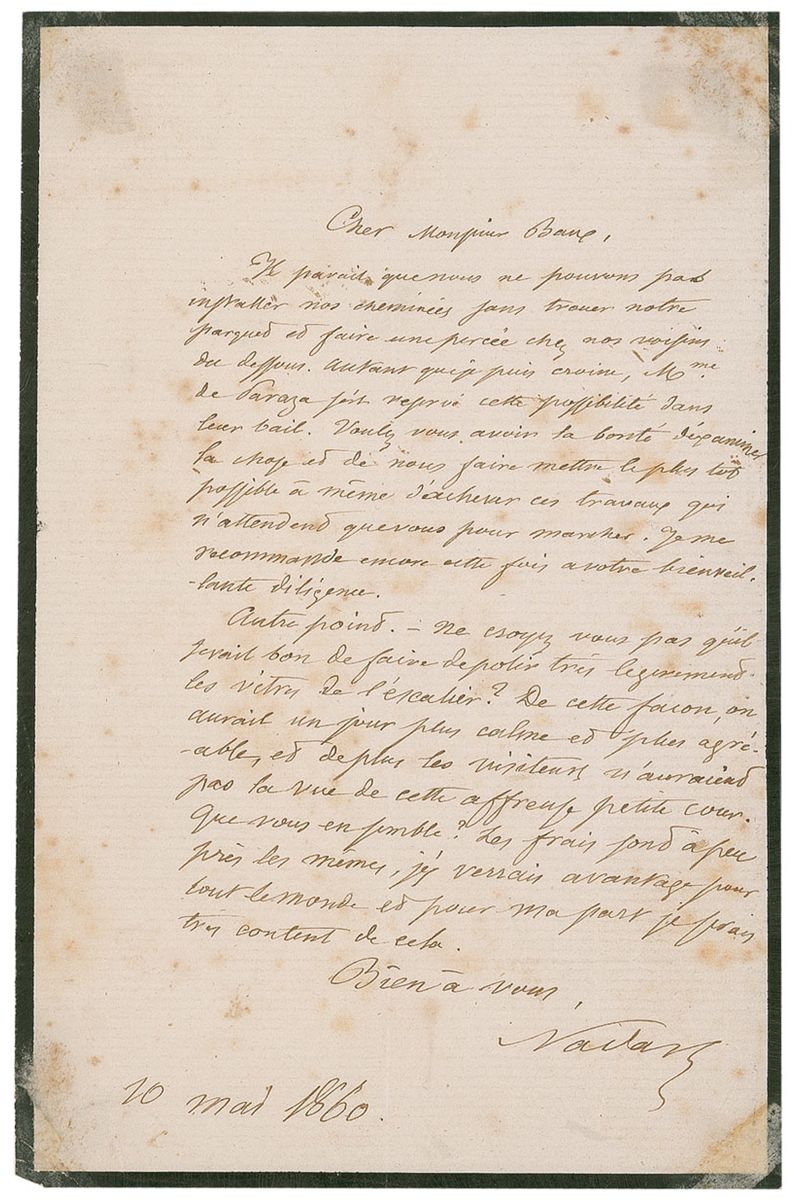 Cher Monsieur Baux,
Il parait que nous ne pouvons pas
installer nos cheminées sans trouer notre
parquet et faire une percée chez nos voisins
du dessous. Autant que je puis croire, Mme
de Paraza s'est reservé cette possibilité dans
leur bail. Voulez vous avoir la bonté d'examiner
la chose et de nous faire mettre le plus tot
possible à même d'achever ces travaux qui
n'attendent que vous pour marcher. Je me
recommande encore cette fois a votre bienveil-
-lante diligence.
Autre point. — Ne croyez vous pas qu'il
serait bon de faire depolir très legerement
les vitres de l'escalier? De cette facon, on
aurait un jour plus calme et plus agré-
-able, et de plus les visiteurs n'auraient
pas la vue de cette affreuse petite cour.
Que vous en semble? Les frais sont à peu
près les mêmes, j'y verrais avantage pour
tout le monde et pour ma part je serais
très content de cela.
Bien à vous,
Nadar
10 mai 1860.